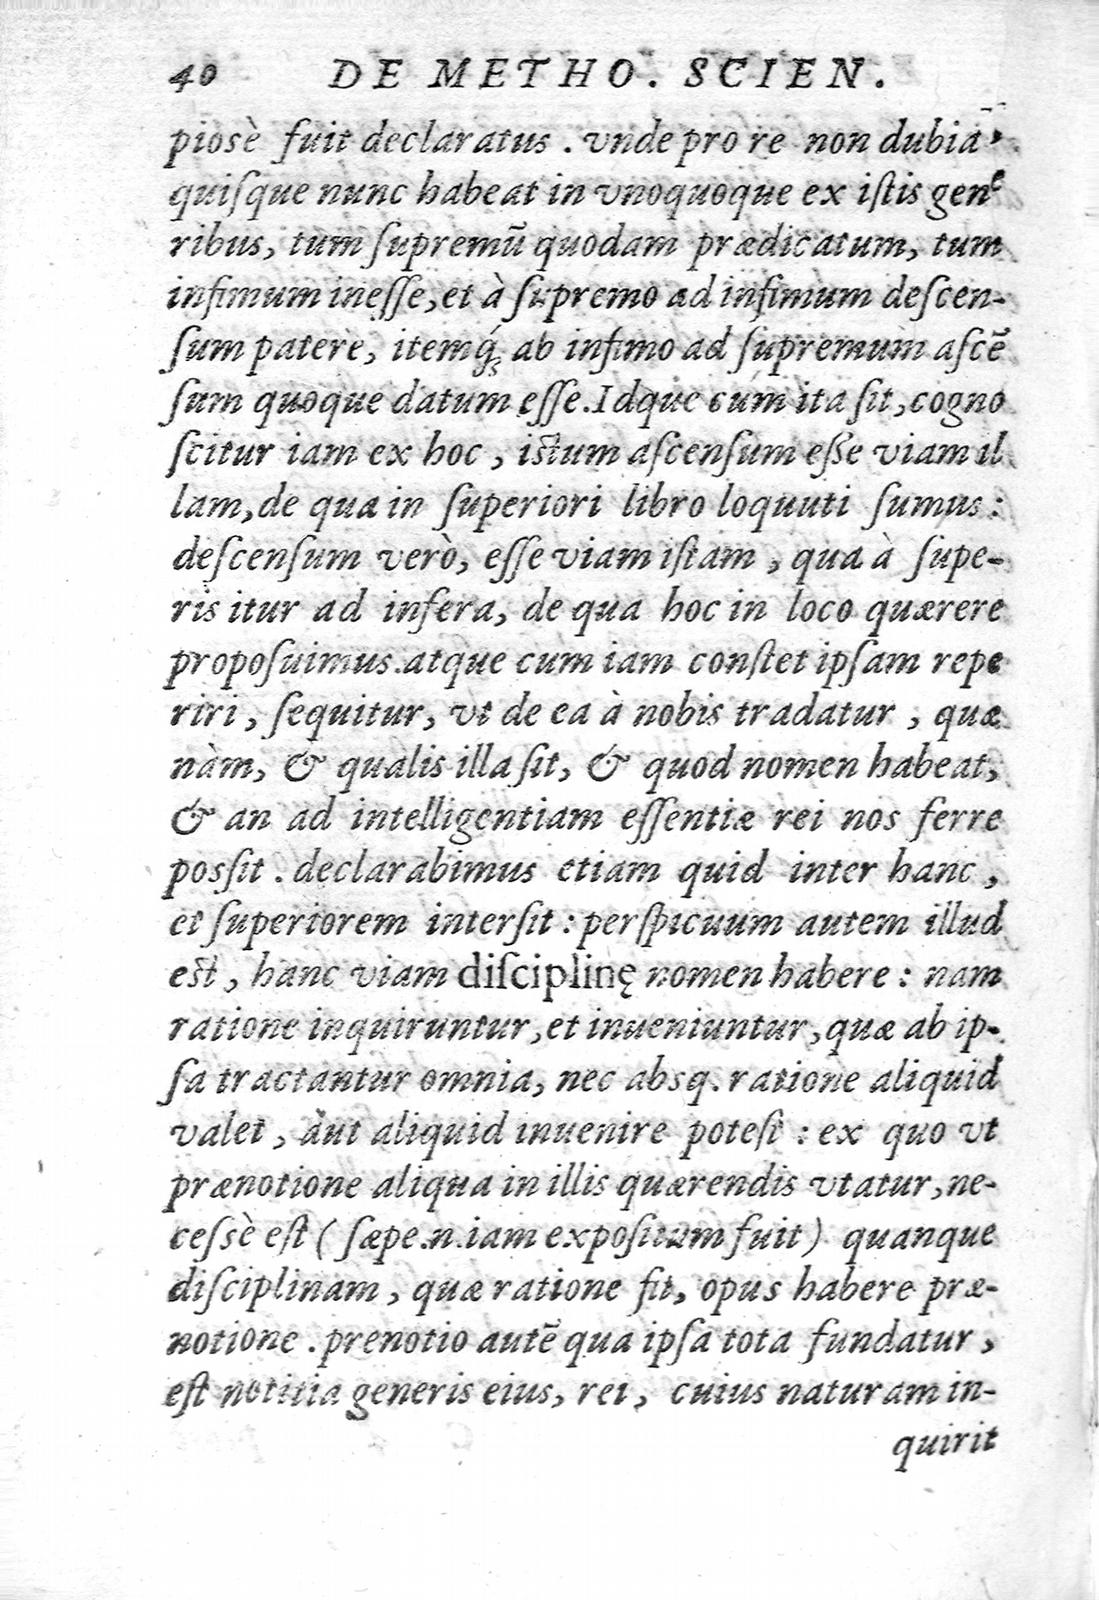 40 DE METHO. SCIEN.
piosè fuit declaratus . vnde pro re non dubia,
quiſque nunc habeat in vnoquoque ex iſtis gene
ribus, tum ſupremũ quodam prædicatum, tum
infimum ineſſe, et à ſupremo ad infimum deſcen-
ſum patere, itemq́; ab infimo ad ſupremum aſcẽ
ſum quoque datum eſſe. Idque cum ita ſit, cogno
ſcitur iam ex hoc , iſtum aſcenſum eſſe viam il
lam, de qua in ſuperiori libro loquuti ſumus :
deſcenſum verò, eſſe viam iſtam , qua à ſupe-
ris itur ad infera, de qua hoc in loco quærere
propoſuimus. atque cum iam conſtet ipſam repe
riri , ſequitur, vt de ea à nobis tradatur , quæ
nàm, & qualis illa ſit, & quod nomen habeat,
& an ad intelligentiam eſſentiæ rei nos ferre
posſit . declarabimus etiam quid inter hanc ,
et ſuperiorem interſit : perſpicuum autem illud
eſt , hanc viam diſciplinę nomen habere : nam
ratione inquiruntur, et inueniuntur, quæ ab ip-
ſa tractantur omnia, nec absq. ratione aliquid
valet , aut aliquid inuenire poteſt : ex quo vt
prænotione aliqua in illis quærendis vtatur, ne-
ceſsè eſt ( ſæpe .n. iam expoſitum fuit ) quanque
diſciplinam , quæ ratione fit, opus habere præ-
notione . prenotio autẽ qua ipſa tota fundatur ,
eſt notitia generis eius, rei , cuius naturam in-
quirit